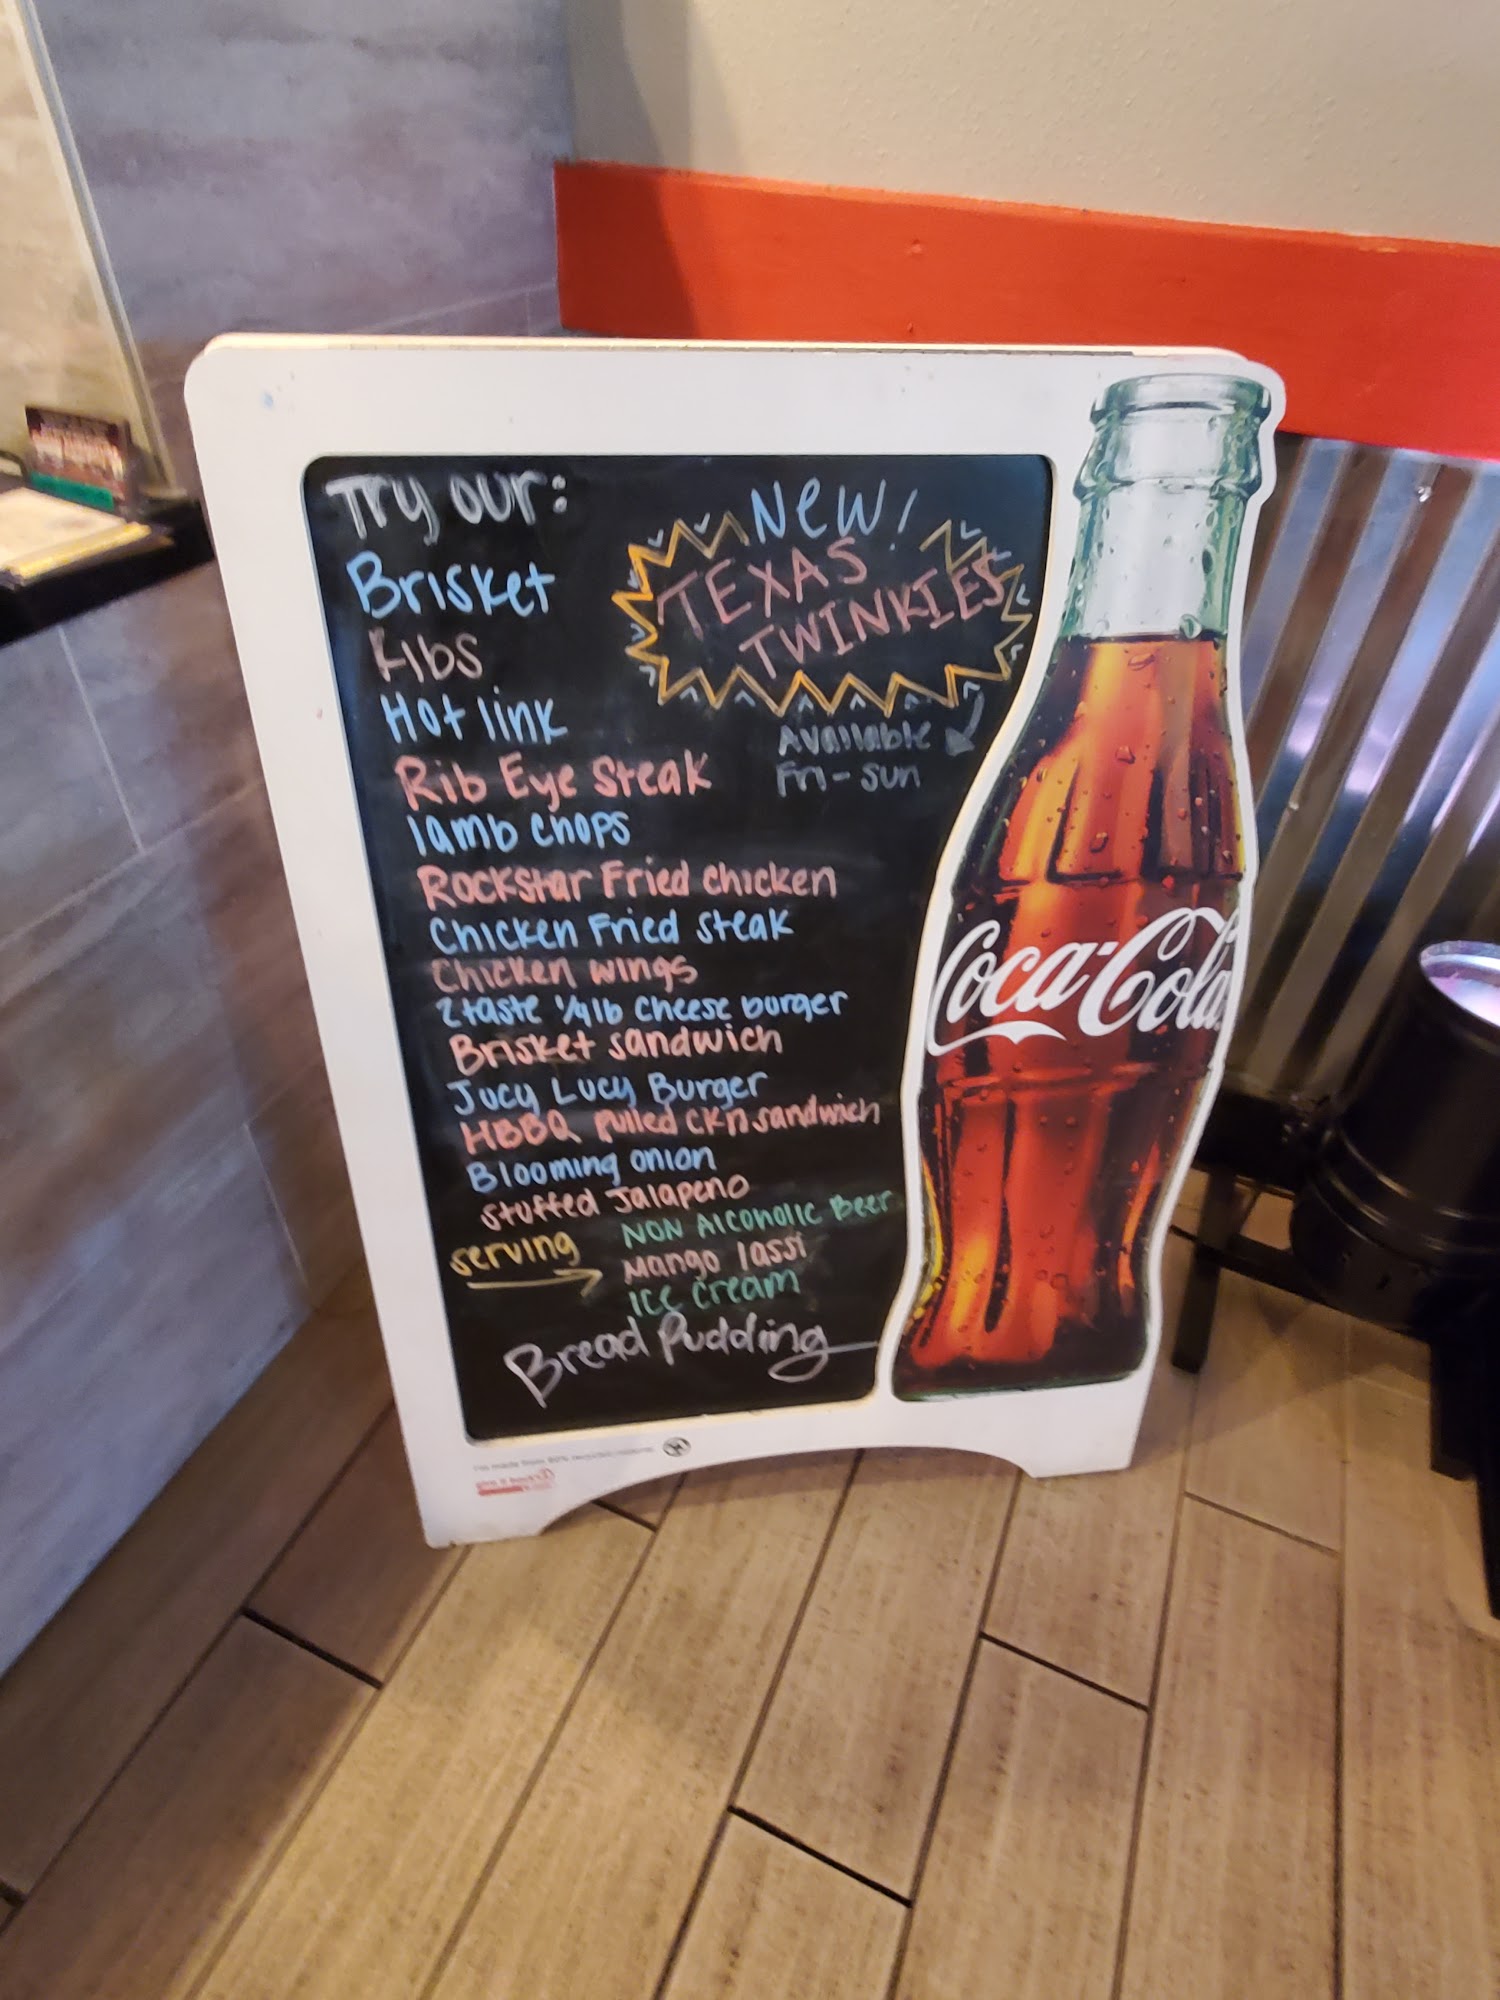 Try our:
Brisket
Ribs
Hot link
Rib Eye Steak
lamb chops
Rockstar Fried chicken
Chicken Fried steak
Chicken wings
2taste 1/4lb Cheese burger
Brisket sandwich
Jucy Lucy Burger
HBBQ Pulled CKn sandwich
Blooming onion
stuffed Jalapeno
serving
NON Alcoholic Beer
Mango lassi
ice cream
Bread Pudding
New!
TEXAS
TWINKIES
Available
Fri - sun
Coca-Cola
I'm made from 80% recycled material
give it back